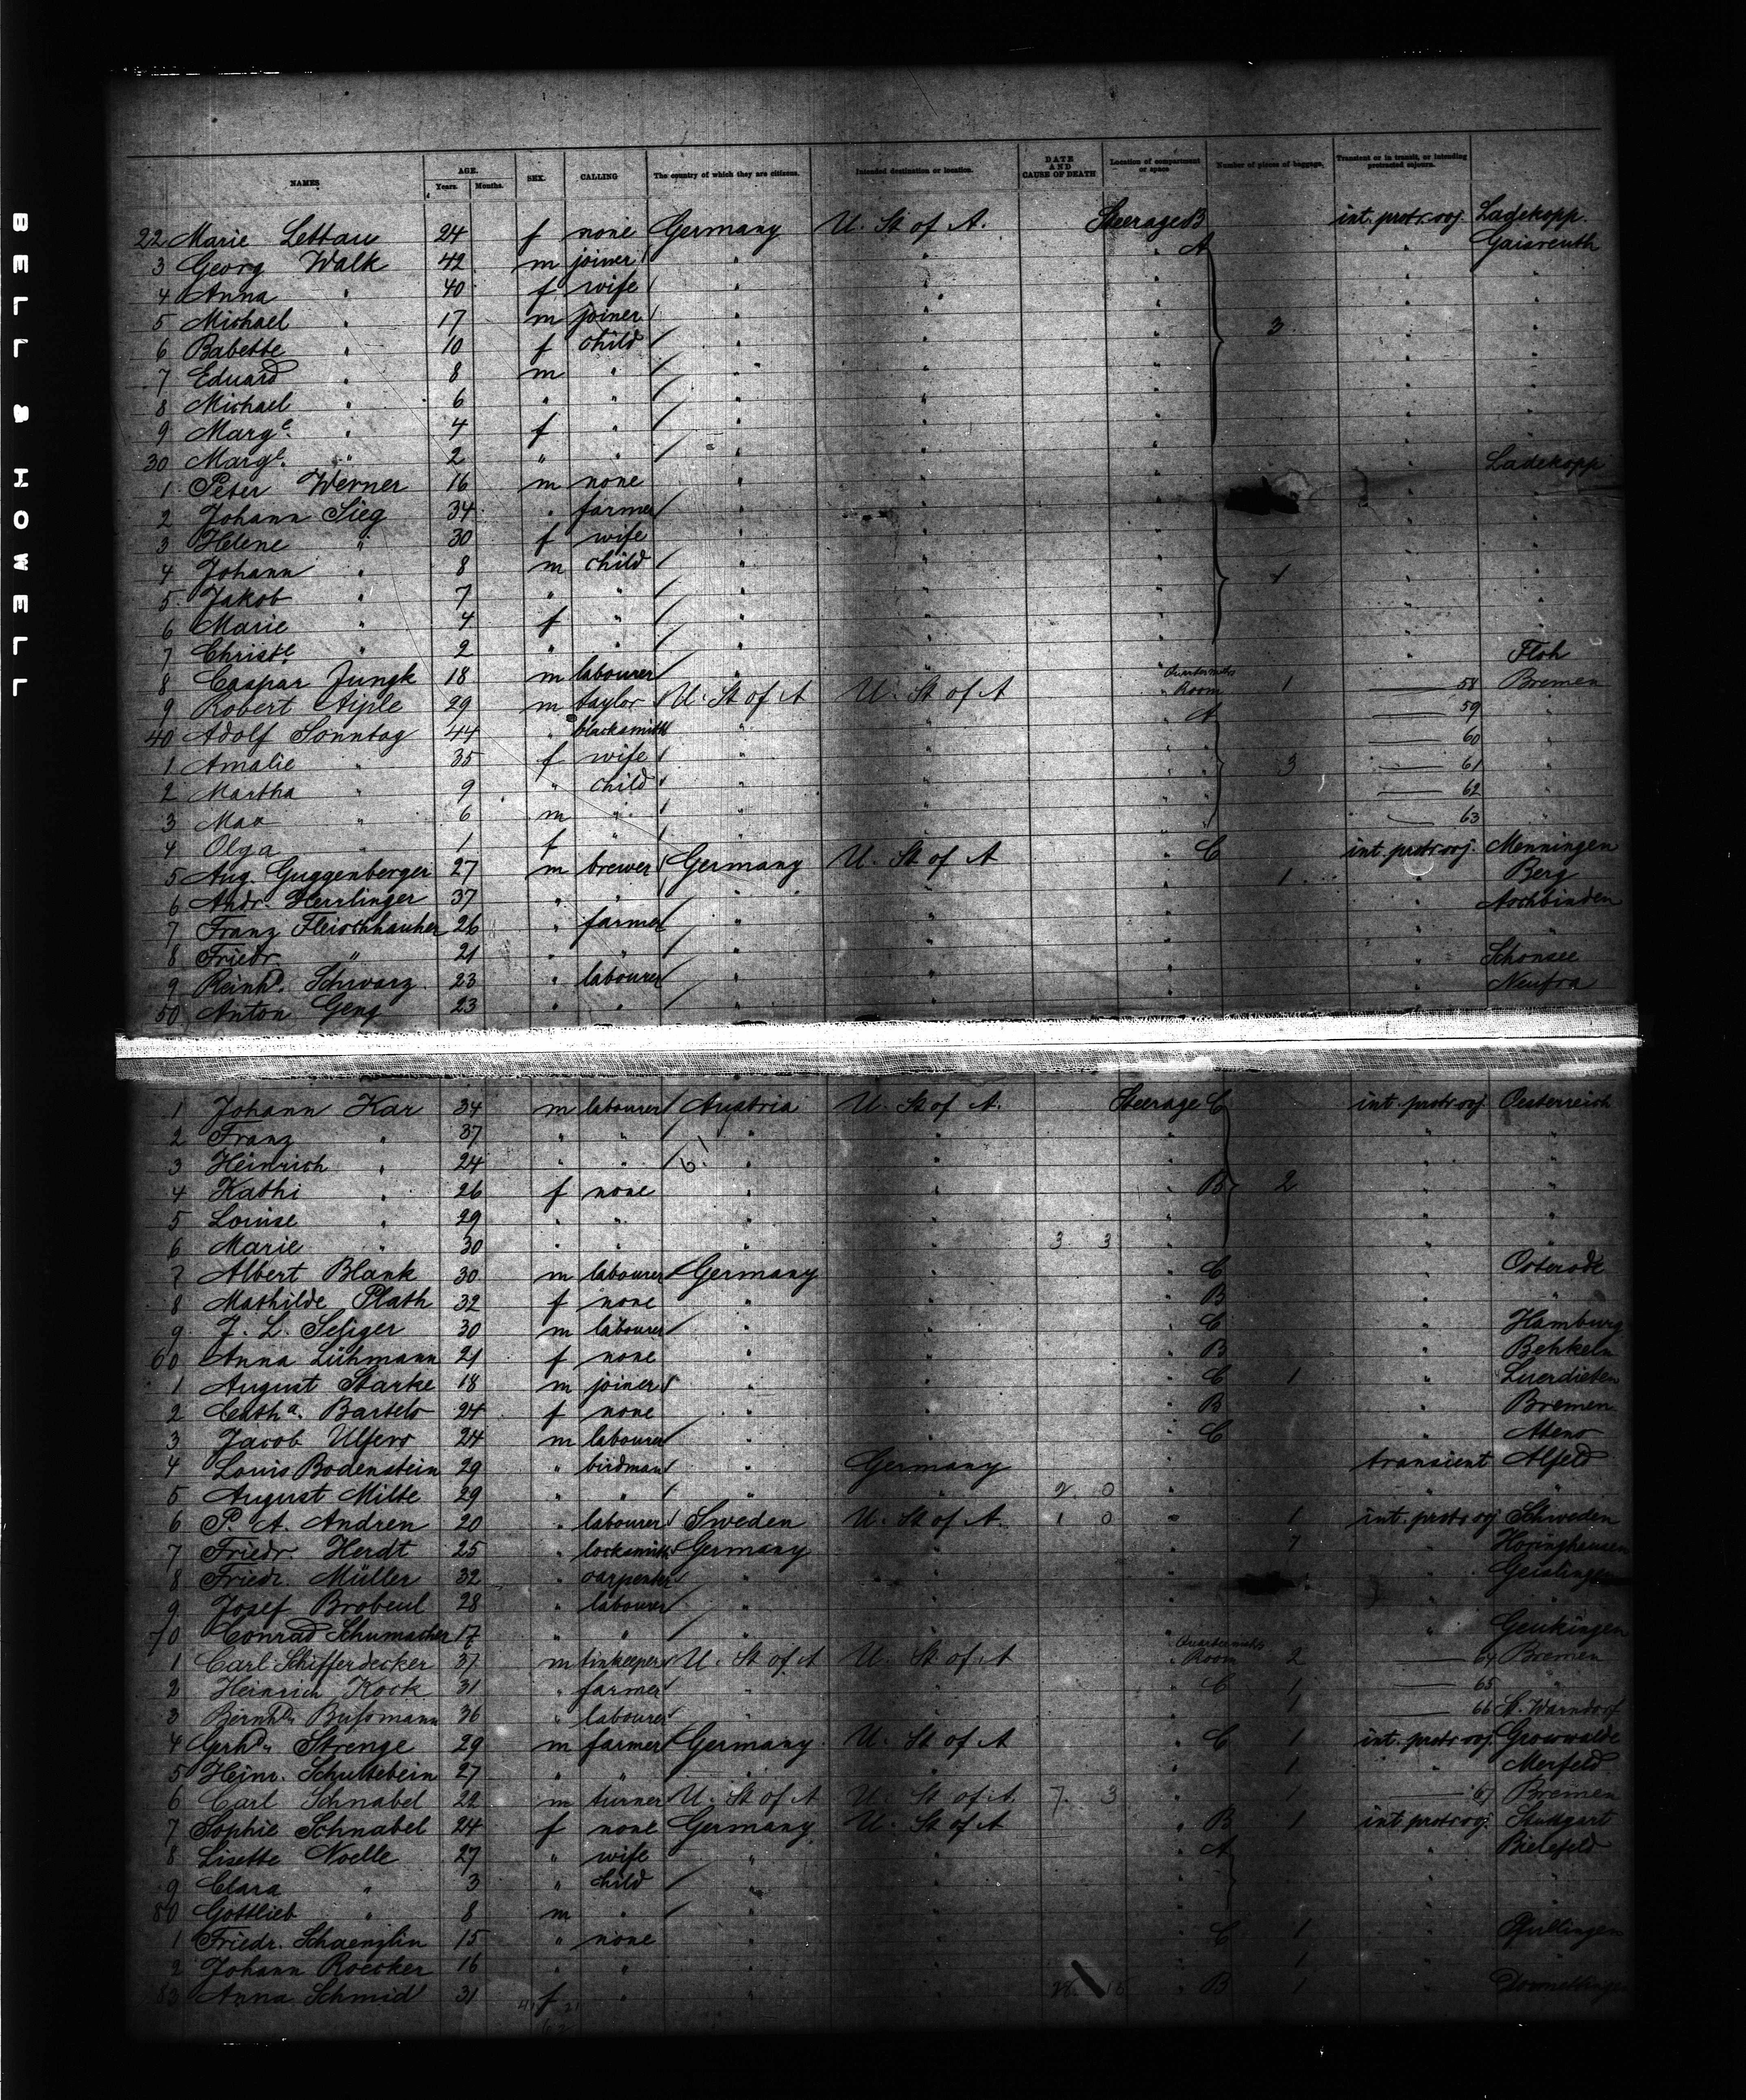 BELL & HOWELL
NAMES AGE. Years. Months. SEX. CALLING The country of which they are citizens. Intended destination or location. DATE AND CAUSE OF DEATH Location of compartment or space Number of pieces of baggage. Transient or in transit, or intending protracted sojourn.
22 Marie Lettau 24 f none Germany U. St of A. Steerage B int. protr. soj. Ladekopp
3 Georg Walk 42 m joiner " " " A " Gaisreuth
4 Anna " 40 f wife " " " " "
5 Michael " 17 m joiner " " " " "
6 Babette " 10 f child " " " 3 " "
7 Eduard " 8 m " " " " " "
8 Michael " 6 " " " " " " "
9 Marg e. " 4 f " " " " " "
30 Marg e. " 2 " " " " " " "
1 Peter Werner 16 m none " " " " Ladekopp
2 Johann Sieg 34 " farmer " " " " "
3 Helene " 30 f wife " " " " "
4 Johann " 8 m child " " " " "
5 Jakob " 7 " " " " " " "
6 Marie " 4 f " " " " " "
7 Christe. " 2 " " " " " " "
8 Caspar Jungk 18 m labourer " " " " Floh
9 Robert Aiple 29 m taylor U. St of A U. St of A " Room 1 58 Bremen
40 Adolf Sonntag 44 " blacksmith " " " A 59 "
1 Amalie " 35 f wife " " " 60 "
2 Martha " 9 " child " " " 3 61 "
3 Max " 6 m " " " " 62 "
4 Olga " 1 f " " " " 63 "
5 Aug. Guggenberger 27 m brewer Germany U. St of A " C int. protr. soj. Menningen
6 Andr. Herrlinger 37 " " " " " 1 " Berg
7 Franz Fleischhauher 26 " farmer " " " "
8 Friedr. " 21 " " " " " " "
9 Reinhd. Schwarz 23 " labourer " " " " Schonsee
50 Anton Geng 23 " " " " " " Neufra
1 Johann Kar 34 m labourer Austria U. St of A. Steerage C int. protr. soj. Oesterreich
2 Franz " 37 " " " " " " "
3 Heinrich " 24 " " " " " " "
4 Kathi " 26 f none " " " B 2 " "
5 Louise " 29 " " " " " " "
6 Marie " 30 " " " " 3 3 " " "
7 Albert Blank 30 m labourer Germany " " C " Osterode
8 Mathilde Plath 32 f none " " " B " "
9 J. L. Seliger 30 m labourer " " " C " Hamburg
60 Anna Lühmann 21 f none " " " B "
1 August Starke 18 m joiner " " " C 1 "
2 Catha. Bartels 24 f none " " " B " Bremen
3 Jacob Ulfers 24 m labourer " " " C "
4 Louis Bodenstein 29 " birdman " Germany " transient Alfeld
5 August Milte 29 " " " " 2 0 " " "
6 P. A. Andren 20 " labourer Sweden U. St of A. 1 0 " 1 int. protr. soj. Schweden
7 Friedr. Herdt 25 " locksmith Germany " " "
8 Friedr. Müller 32 " carpenter " " " " Geislingen
9 Josef Brobeul 28 " labourer " " " " "
70 Conrad Schumacher 17 " " " " " "
1 Carl Schifferdecker 37 m U. St of A U. St of A " Room 2 64 Bremen
2 Heinrich Kock 31 " farmer " " " C 1 65 "
3 Bernhd. Bußmann 36 " labourer " " " 1 66 St. Warndorf
4 Gerhd. Strenge 29 m farmer Germany U. St of A " C 1 int. protr. soj.
5 Heinr. Schultebein 27 " " " " " 1 " Merfeld
6 Carl Schnabel 22 m turner U. St of A U. St of A 7 3 " 1 67 Bremen
7 Sophie Schnabel 24 f none Germany U. St of A " B 1 int. protr. soj. Stuttgart
8 Lisette Noelle 27 " wife " " " A " Bielefeld
9 Clara " 3 " child " " " " "
80 Gottlieb " 8 m " " " " " "
1 Friedr. Schaenzlin 15 " none " " " C 1 " Pfullingen
2 Johann Roecker 16 " " " " " 1 " "
83 Anna Schmid 31 f " " " " B 1 "